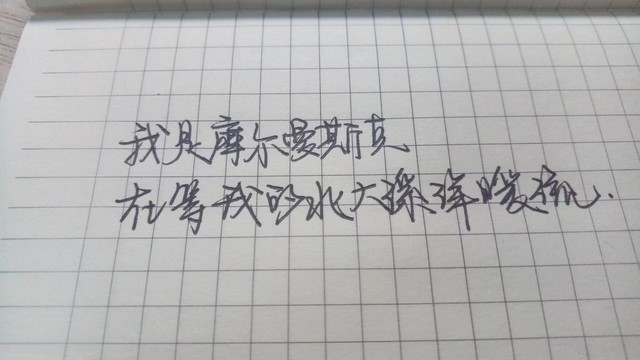 我是摩尔曼斯克
在等我的北大深洋暖流.